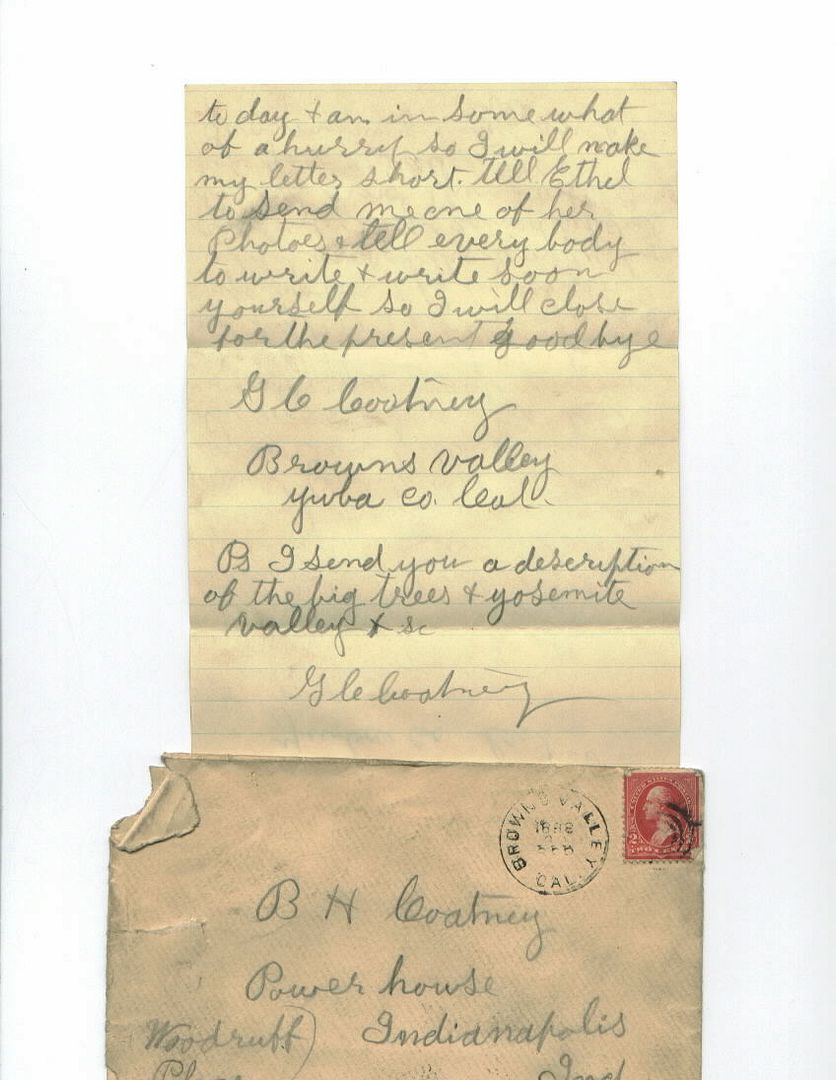 to day + am in some what
of a hurry so I will make
my letter short. tell Ethel
to send me one of her
Photoes & tell every body
to write + write soon
yourself so I will close
for the present goodbye
G C Coatney
Browns valley
yuba co. Cal.
Ps I send you a description
of the big trees + yosemite
valley & sc
G C Coatney
BROWNS VALLEY
1898
CAL.
B H Coatney
Power house
Woodruff) Indianapolis
Place Ind